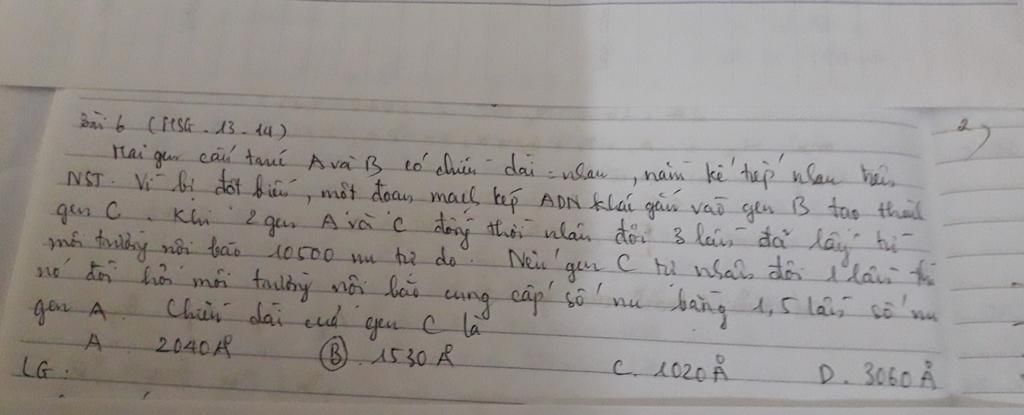 Bài 6 (HSG - 13 - 14)
2)
Hai gen cấu trúc A và B có chiều dài = nhau, nằm kế tiếp nhau trên
NST. Vì bị đột biến, một đoạn mạch kép ADN khác gắn vào gen B tạo thành
gen C. Khi 2 gen A và C đồng thời nhân đôi 3 lần đã lấy từ
môi trường nội bào 10500 nu tự do. Nếu gen C tự nhân đôi 1 lần thì
nó đòi hỏi môi trường nội bào cung cấp số nu bằng 1,5 lần số nu
gen A. Chiều dài của gen C là
A. 2040 Å B. 1530 Å C. 1020 Å D. 3060 Å
LG: